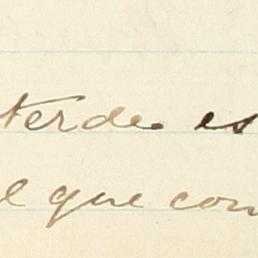 terde es
l que con